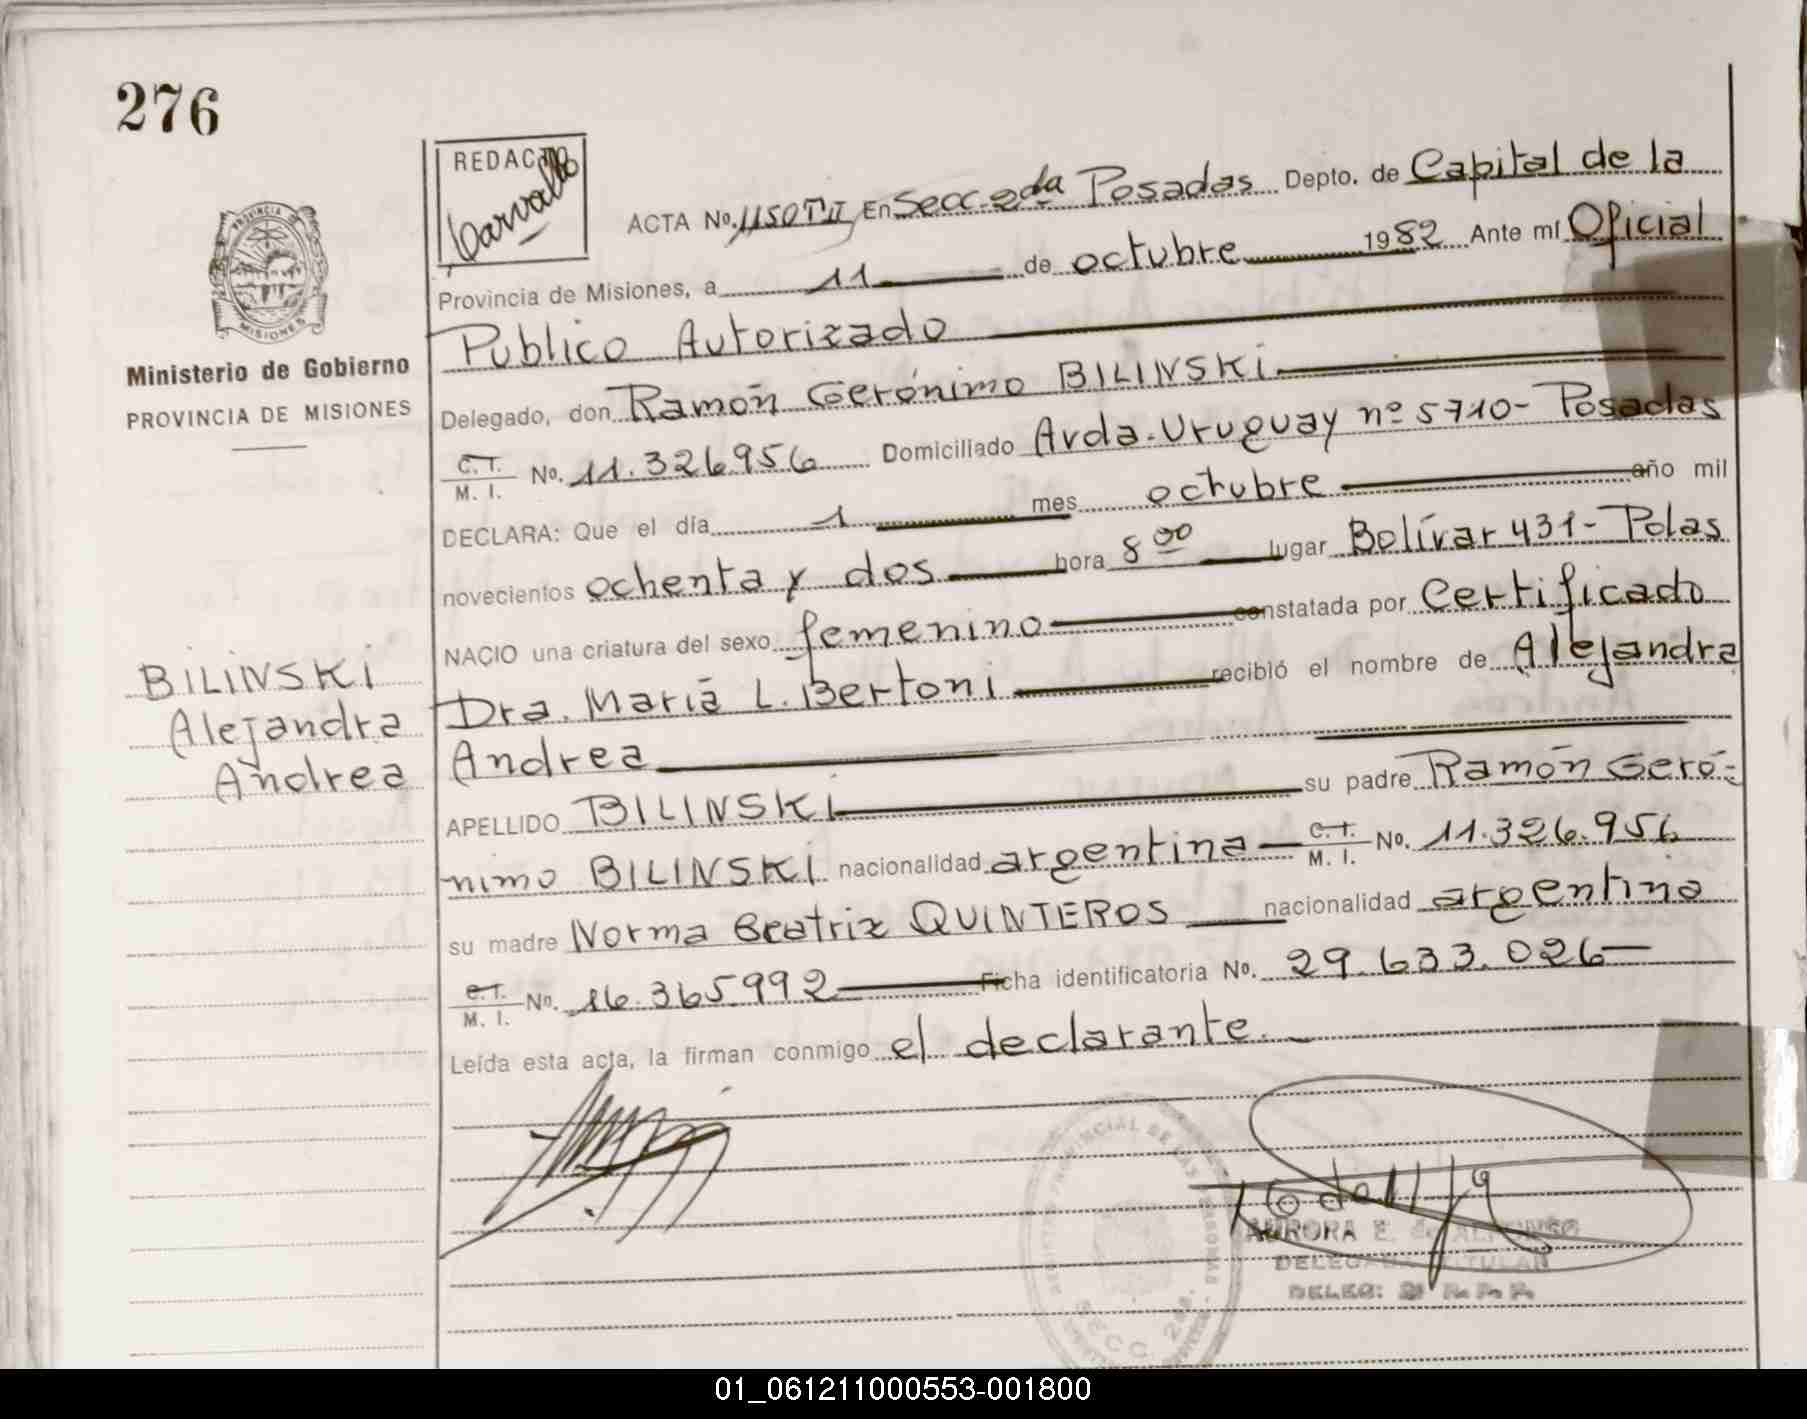 276
REDACTO
Carvallo
ACTA No. 1150 T II En Secc. 2da Posadas Depto. de Capital de la
Provincia de Misiones, a 11 de octubre 1982 Ante mí Oficial
Publico Autorizado
PROVINCIA DE
MISIONES
Ministerio de Gobierno
PROVINCIA DE MISIONES
Delegado, don Ramón Gerónimo BILINSKI
C.I. M. I. No. 11.326956 Domiciliado Avda. Uruguay nº 5710- Posadas
DECLARA: Que el día 1 mes octubre año mil
novecientos ochenta y dos hora 8 00 lugar Bolívar 431- Pdas
NACIO una criatura del sexo femenino constatada por Certificado
Dra. María L. Bertoni recibió el nombre de Alejandra
Andrea
BILINSKI
Alejandra
Andrea
APELLIDO BILINSKI su padre Ramón Geró-
nimo BILINSKI nacionalidad argentina C.I. M. I. No. 11.326.956
su madre Norma Beatriz QUINTEROS nacionalidad argentina
C.I. M. I. No. 16.365.992 Ficha identificatoria No. 29.633.026
Leída esta acta, la firman conmigo el declarante.
REGISTRO PROVINCIAL DE LAS PERSONAS
SECC. 2da.
AURORA E. de ALFONSO
DELEGADA TITULAR
DELEG: 2ª R.P.P.
01_061211000553-001800